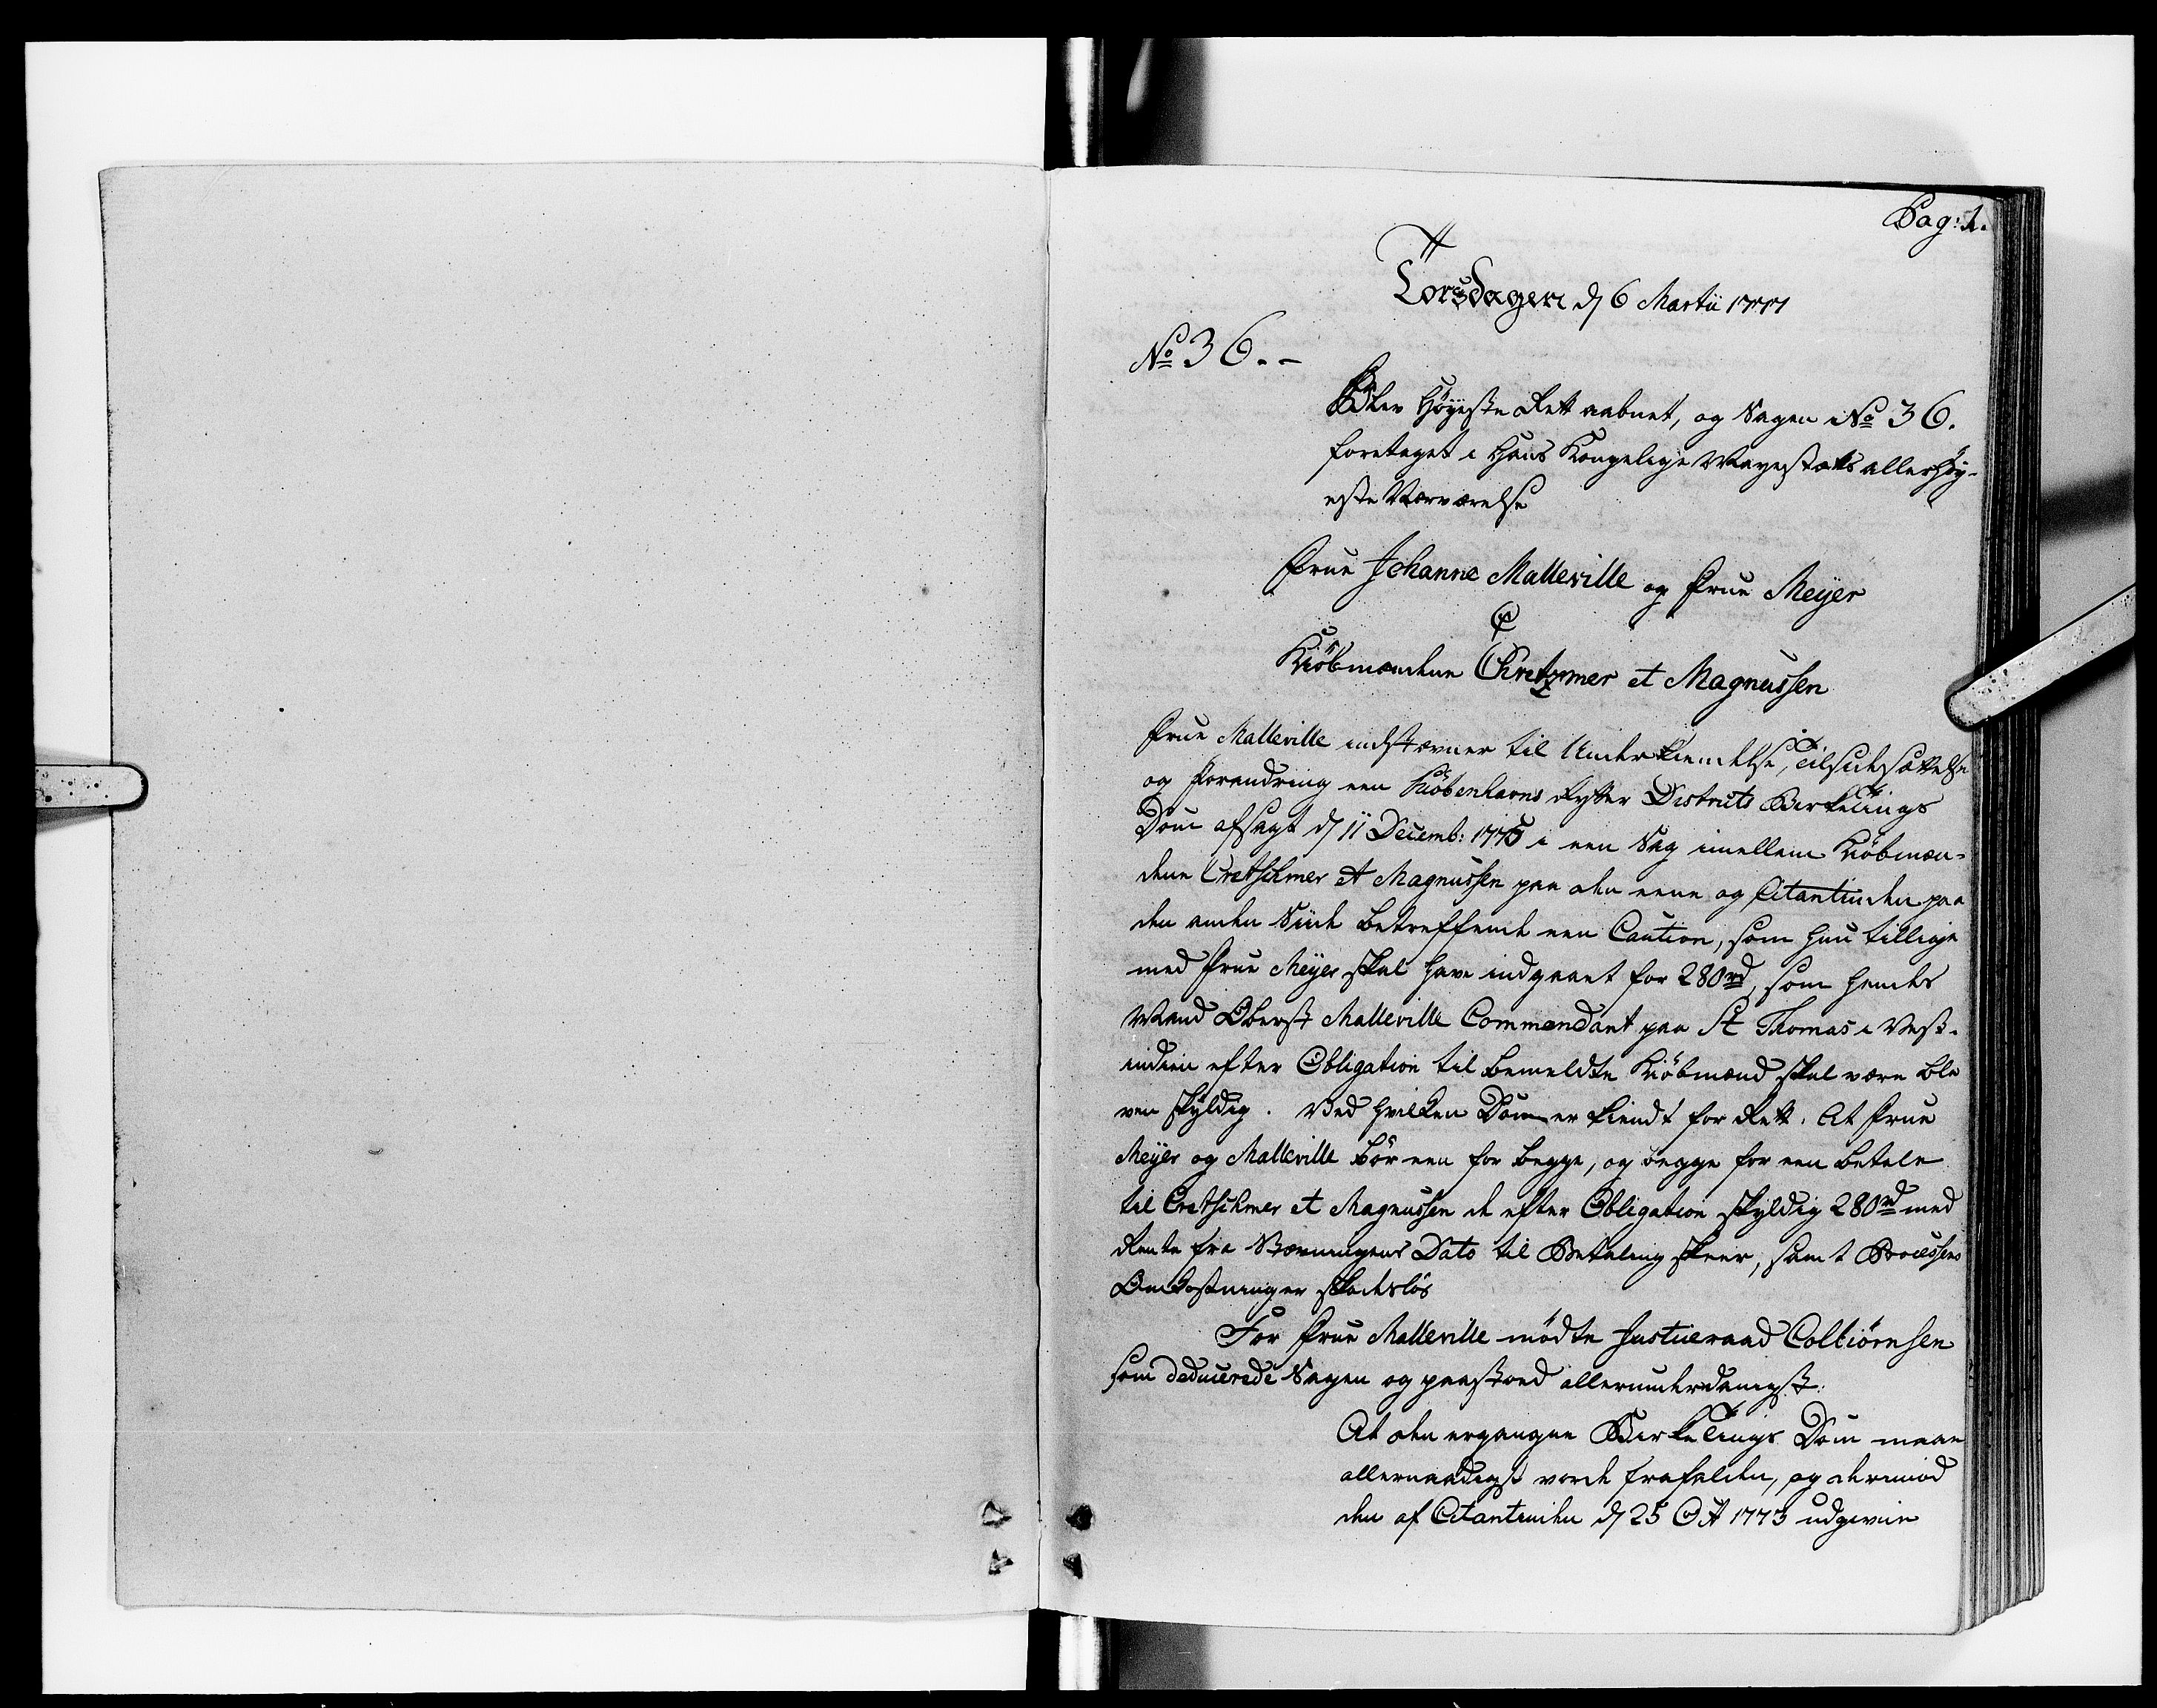 Pag: 1.
Torsdagen d 6 Martii 1777
No 36. -
Blev Høyeste Rett aabnet, og Sagen No 36.
foretaget i Hans Kongelige Mayestæts allerhøy-
este Nærværelse
Frue Johanne Malleville og Frue Meyer
Ctr
Kiøbmændene Cretzmer et Magnussen
Frue Malleville indstævner til Underkiendelse, Tilsidesættelse
og Forandring een Kiøbenhavns Rytter Districts Birketings
Dom afsagt d 11 Decemb: 1775 i een Sag imellem Kiøbmæn-
dene Cretschmer et Magnussen paa den eene og Citantinden paa
den anden Siide betreffende een Caution, som hun tillige
med Frue Meyer skal have indgaaet for 280 rd, som hendes
Mand Oberst Malleville Commendant paa St Thomas i Vest-
indien efter Obligation til bemeldte Kiøbmænd skal være ble
ven skyldig. Ved hvilken Dom er kiendt for Rett: At Frue
Meyer og Malleville bør een for begge, og begge for een betale
til Cretschmer et Magnussen de efter Obligation skyldig 280 rd med
Rente fra Stævningens Dato til Betaling skeer, samt Processens
Omkostninger skadesløs
For Frue Malleville mødte Justiceraad Colbiørnsen
som deducerede Sagen og paastoed allerunderdanigst:
At den ergangne Birketings Dom maae
allernaadigst vorde frafalden, og derimod
den af Citantinden d 25 Oct 1773 udgivne